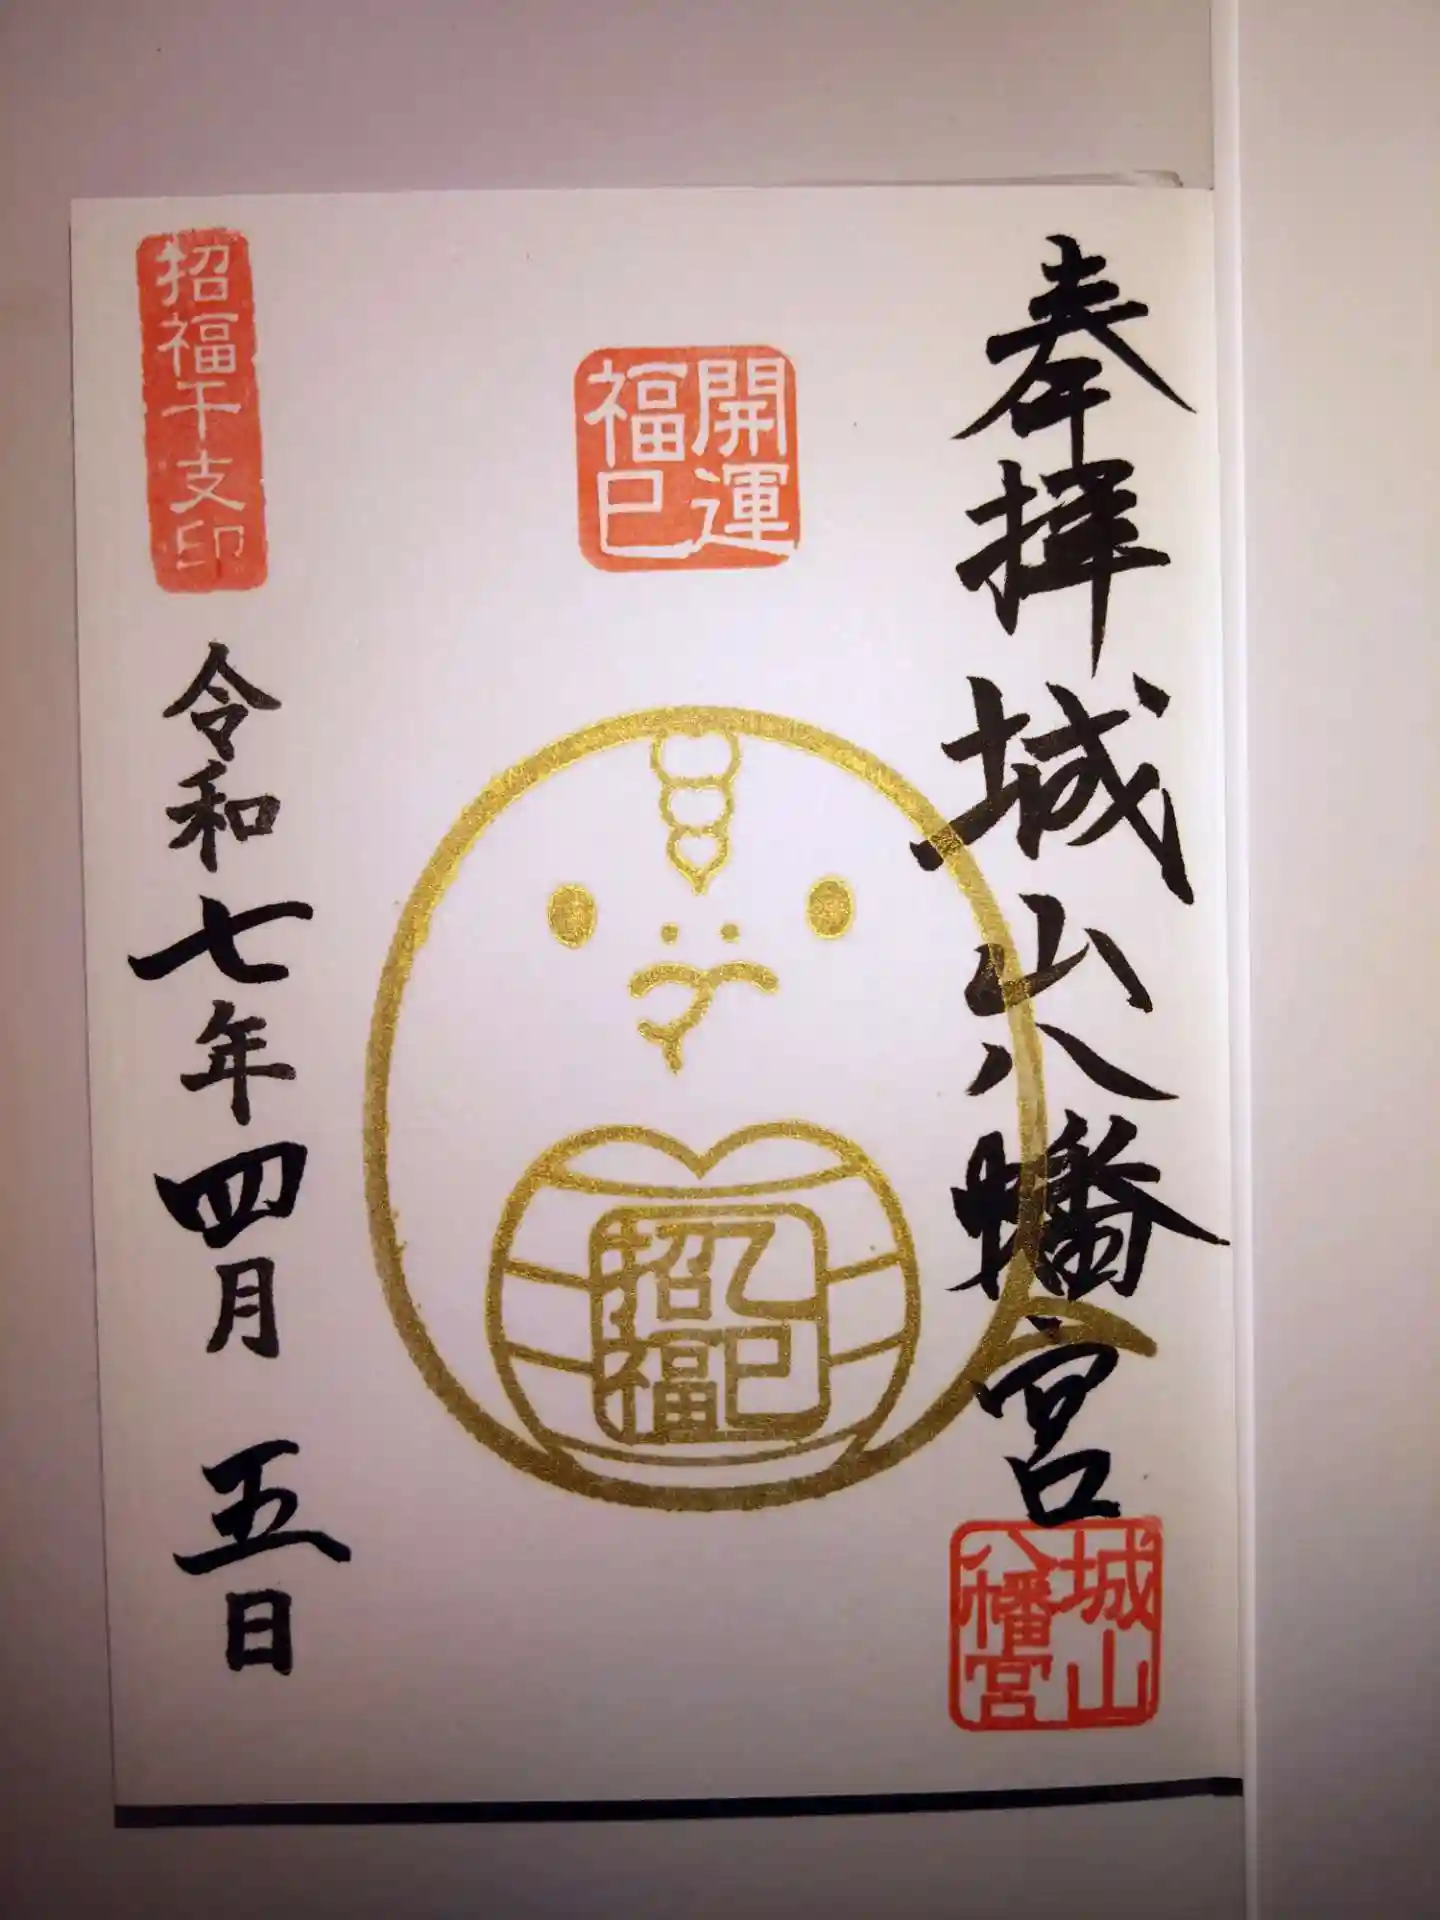 奉拝 城山八幡宮
城山
八幡宮
開運
福巳
乙巳
招福
招福干支印
令和七年四月五日